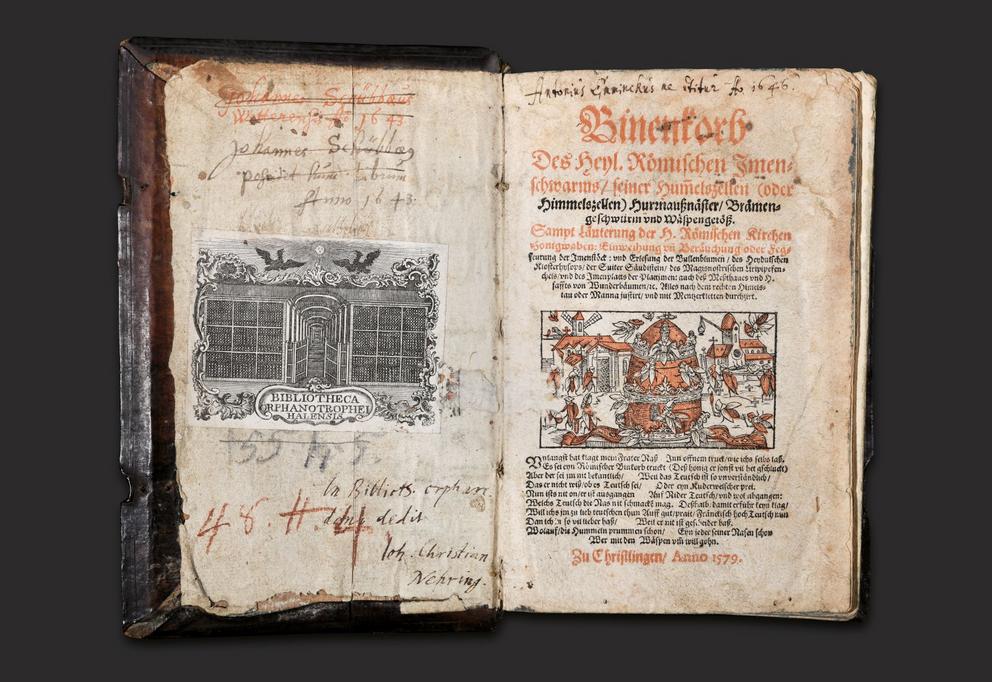 Johannes Schübbäus
Anno 1643
Johannes Schübbæg
posidet hunc librum
Anno 1643.
BIBLIOTHECA
ORPHANOTROPHEI
HALENSIS
48. H. 4
In Biblioth. orphan.
dono dedit
Joh. Christian
Nehring.
Antonius Ao. 1646.
Binenkorb
Des Heyl. Römischen Jmen⸗
schwarms / seiner Humelszellen (oder
Himmelszellen) Hurnaußnäster / Brämen⸗
geschwürm vnd Wäspengetöß.
Sampt Läuterung der H. Römischen Kirchen
Honigwaben: Einweihung vñ Beräuchung oder Feg⸗
feurung der Jmenstöck: vnd Erlesung der Bullenblumen / des Heydnischen
Klosterhysops / der Suiter Säudisteln / des
vnd des Jmenplatts der Plattimen: auch deß Meßthaues vnd H.
saffts von Wunderbäumen / ꝛc. Alles nach dem rechten Himels⸗
tau oder Manna justirt / vnd mit Mentzerkletten durchziert.
Vnlangst hat klagt mein Frater Naß Inn offnem truck / wie ichs selbs laß,
Es sei eyn Römischer Binkorb truckt (Deß honig er sonst vil het gschluckt)
Aber der sei jm nit bekantlich / Weil das Teutsch ist so vnverständlich /
Das er nicht weiß / ob es Teutsch sei / Oder eyn Kuderwelscher prei.
Nun ists nit on / er ist außgangen Auf Nider Teutsch / vnd wol abgangen:
Welchs Teutsch die Nas nit schmackt mag. Deßhalb damit erführ keyn klag /
Will ichs jm zu lieb teutschen thun Auff gut / prait / Fränckisch hoch Teutsch nun
Dann ich jn so vil lieber haß / Weil er nit ist gescheider baß.
Wolauf / die Hummeln prummen schon / Eyn jeder seiner Nasen schon
Wer mit den Wäspen vm will gohn.
Zu Christlingen / Anno 1579.